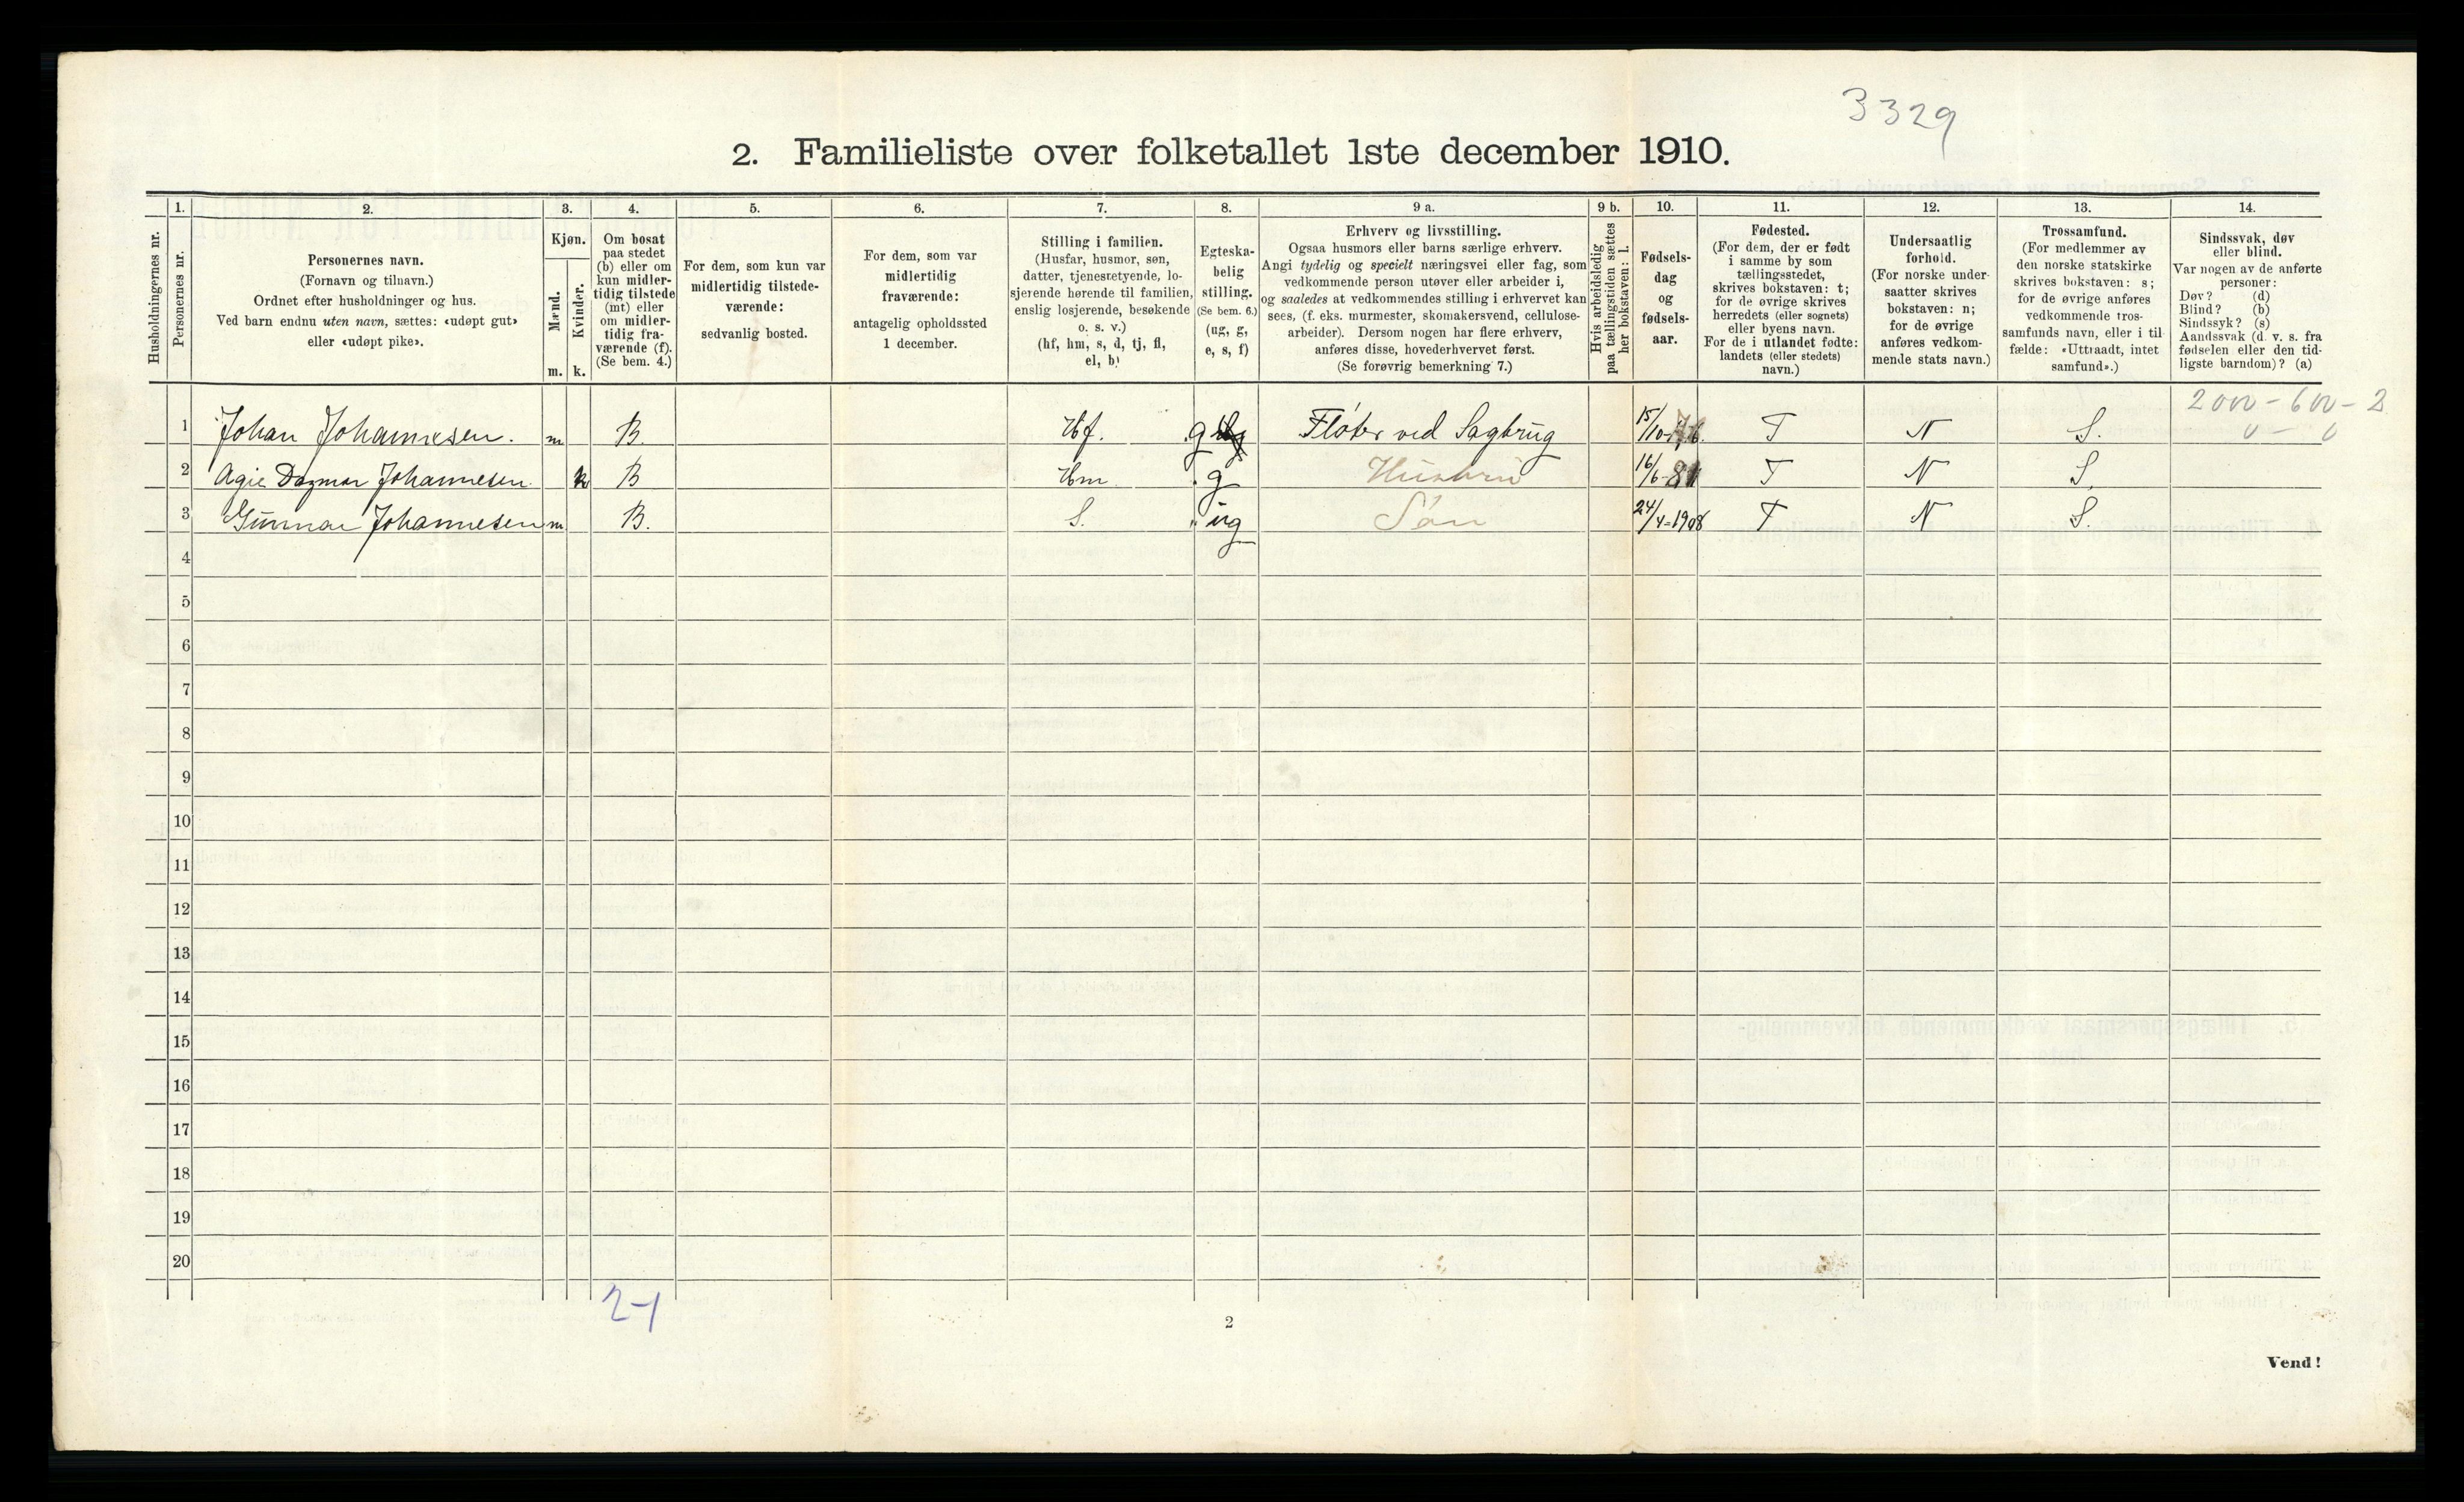 3329
2. Familieliste over folketallet 1ste december 1910.
Husholdningernes nr.
1.
Personernes nr.
2.
Personernes navn.
(Fornavn og tilnavn.)
Ordnet efter husholdninger og hus.
Ved barn endnu uten navn, sættes: «udøpt gut»
eller «udøpt pike».
3.
Kjøn.
Mænd.
m.
Kvinder.
k.
4.
Om bosat
paa stedet
(b) eller om
kun midler-
tidig tilstede
(mt) eller
om midler-
tidig fra-
værende (f).
(Se bem. 4.)
5.
For dem, som kun var
midlertidig tilstede-
værende:
sedvanlig bosted.
6.
For dem, som var
midlertidig
fraværende:
antagelig opholdssted
1 december.
7.
Stilling i familien.
(Husfar, husmor, søn,
datter, tjenestetyende, lo-
sjerende hørende til familien,
enslig losjerende, besøkende
o. s. v.)
(hf, hm, s, d, tj, fl,
el, b)
8.
Egteska-
belig
stilling.
(Se bem. 6.)
(ug, g,
e, s, f)
9 a.
Erhverv og livsstilling.
Ogsaa husmors eller barns særlige erhverv.
Angi tydelig og specielt næringsvei eller fag, som
vedkommende person utøver eller arbeider i,
og saaledes at vedkommendes stilling i erhvervet kan
sees, (f. eks. murmester, skomakersvend, cellulose-
arbeider). Dersom nogen har flere erhverv,
anføres disse, hovederhvervet først.
(Se forøvrig bemerkning 7.)
9 b.
Hvis arbeidsledig
paa tællingstiden sættes
her bokstaven: l.
10.
Fødsels-
dag
og
fødsels-
aar.
11.
Fødested.
(For dem, der er født
i samme by som
tællingsstedet,
skrives bokstaven: t;
for de øvrige skrives
herredets (eller sognets)
eller byens navn.
For de i utlandet fødte:
landets (eller stedets)
navn.)
12.
Undersaatlig
forhold.
(For norske under-
saatter skrives
bokstaven: n;
for de øvrige
anføres vedkom-
mende stats navn.)
13.
Trossamfund.
(For medlemmer av
den norske statskirke
skrives bokstaven: s;
for de øvrige anføres
vedkommende tros-
samfunds navn, eller i til-
fælde: «Uttraadt, intet
samfund».)
14.
Sindssvak, døv
eller blind.
Var nogen av de anførte
personer:
Døv? (d)
Blind? (b)
Sindssyk? (s)
Aandssvak (d. v. s. fra
fødselen eller den tid-
ligste barndom)? (a)
2000 - 600 - 2
0 - 0
1 Johan Johannesen. m B Hf. g Fløter ved Sagbrug 15/10-76. T N S.
2 Agie Dagmar Johannesen k B Hm g Husbru 16/6-81 T N S.
3 Gunnar Johannesen m B. S. ug Søn 24/4-1908 T N S.
4
5
6
7
8
9
10
11
12
13
14
15
16
17
18
19
20
2-1
2
Vend!